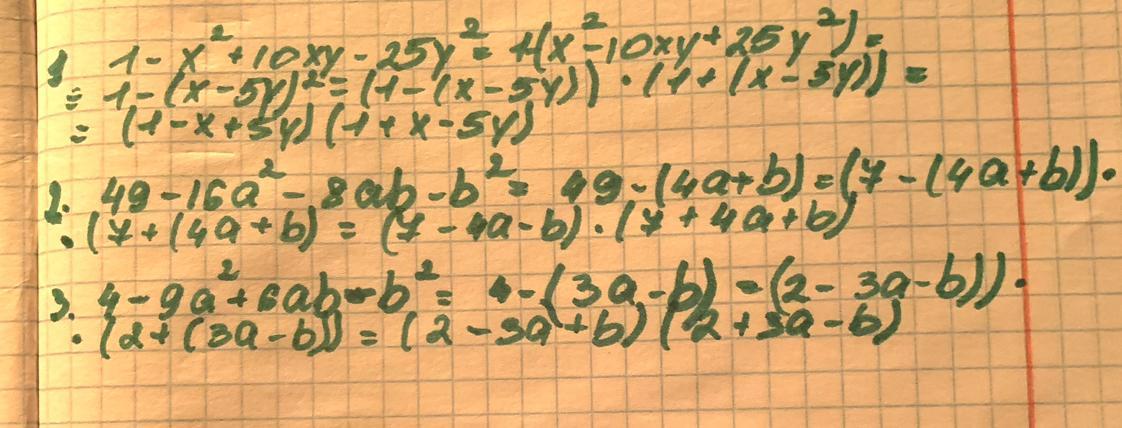 1 1 - x² + 10xy - 25y² = 1-(x² - 10xy + 25y²) =
= 1 - (x - 5y)² = (1 - (x - 5y)) · (1 + (x - 5y)) =
= (1 - x + 5y) (1 + x - 5y)
2. 49 - 16a² - 8ab - b² = 49 - (4a + b) = (7 - (4a + b)) ·
· (7 + (4a + b) = (7 - 4a - b) · (7 + 4a + b)
3. 4 - 9a² + 6ab - b² = 4 - (3a - b) = (2 - 3a - b)) ·
· (2 + (3a - b)) = (2 - 3a + b) (2 + 3a - b)